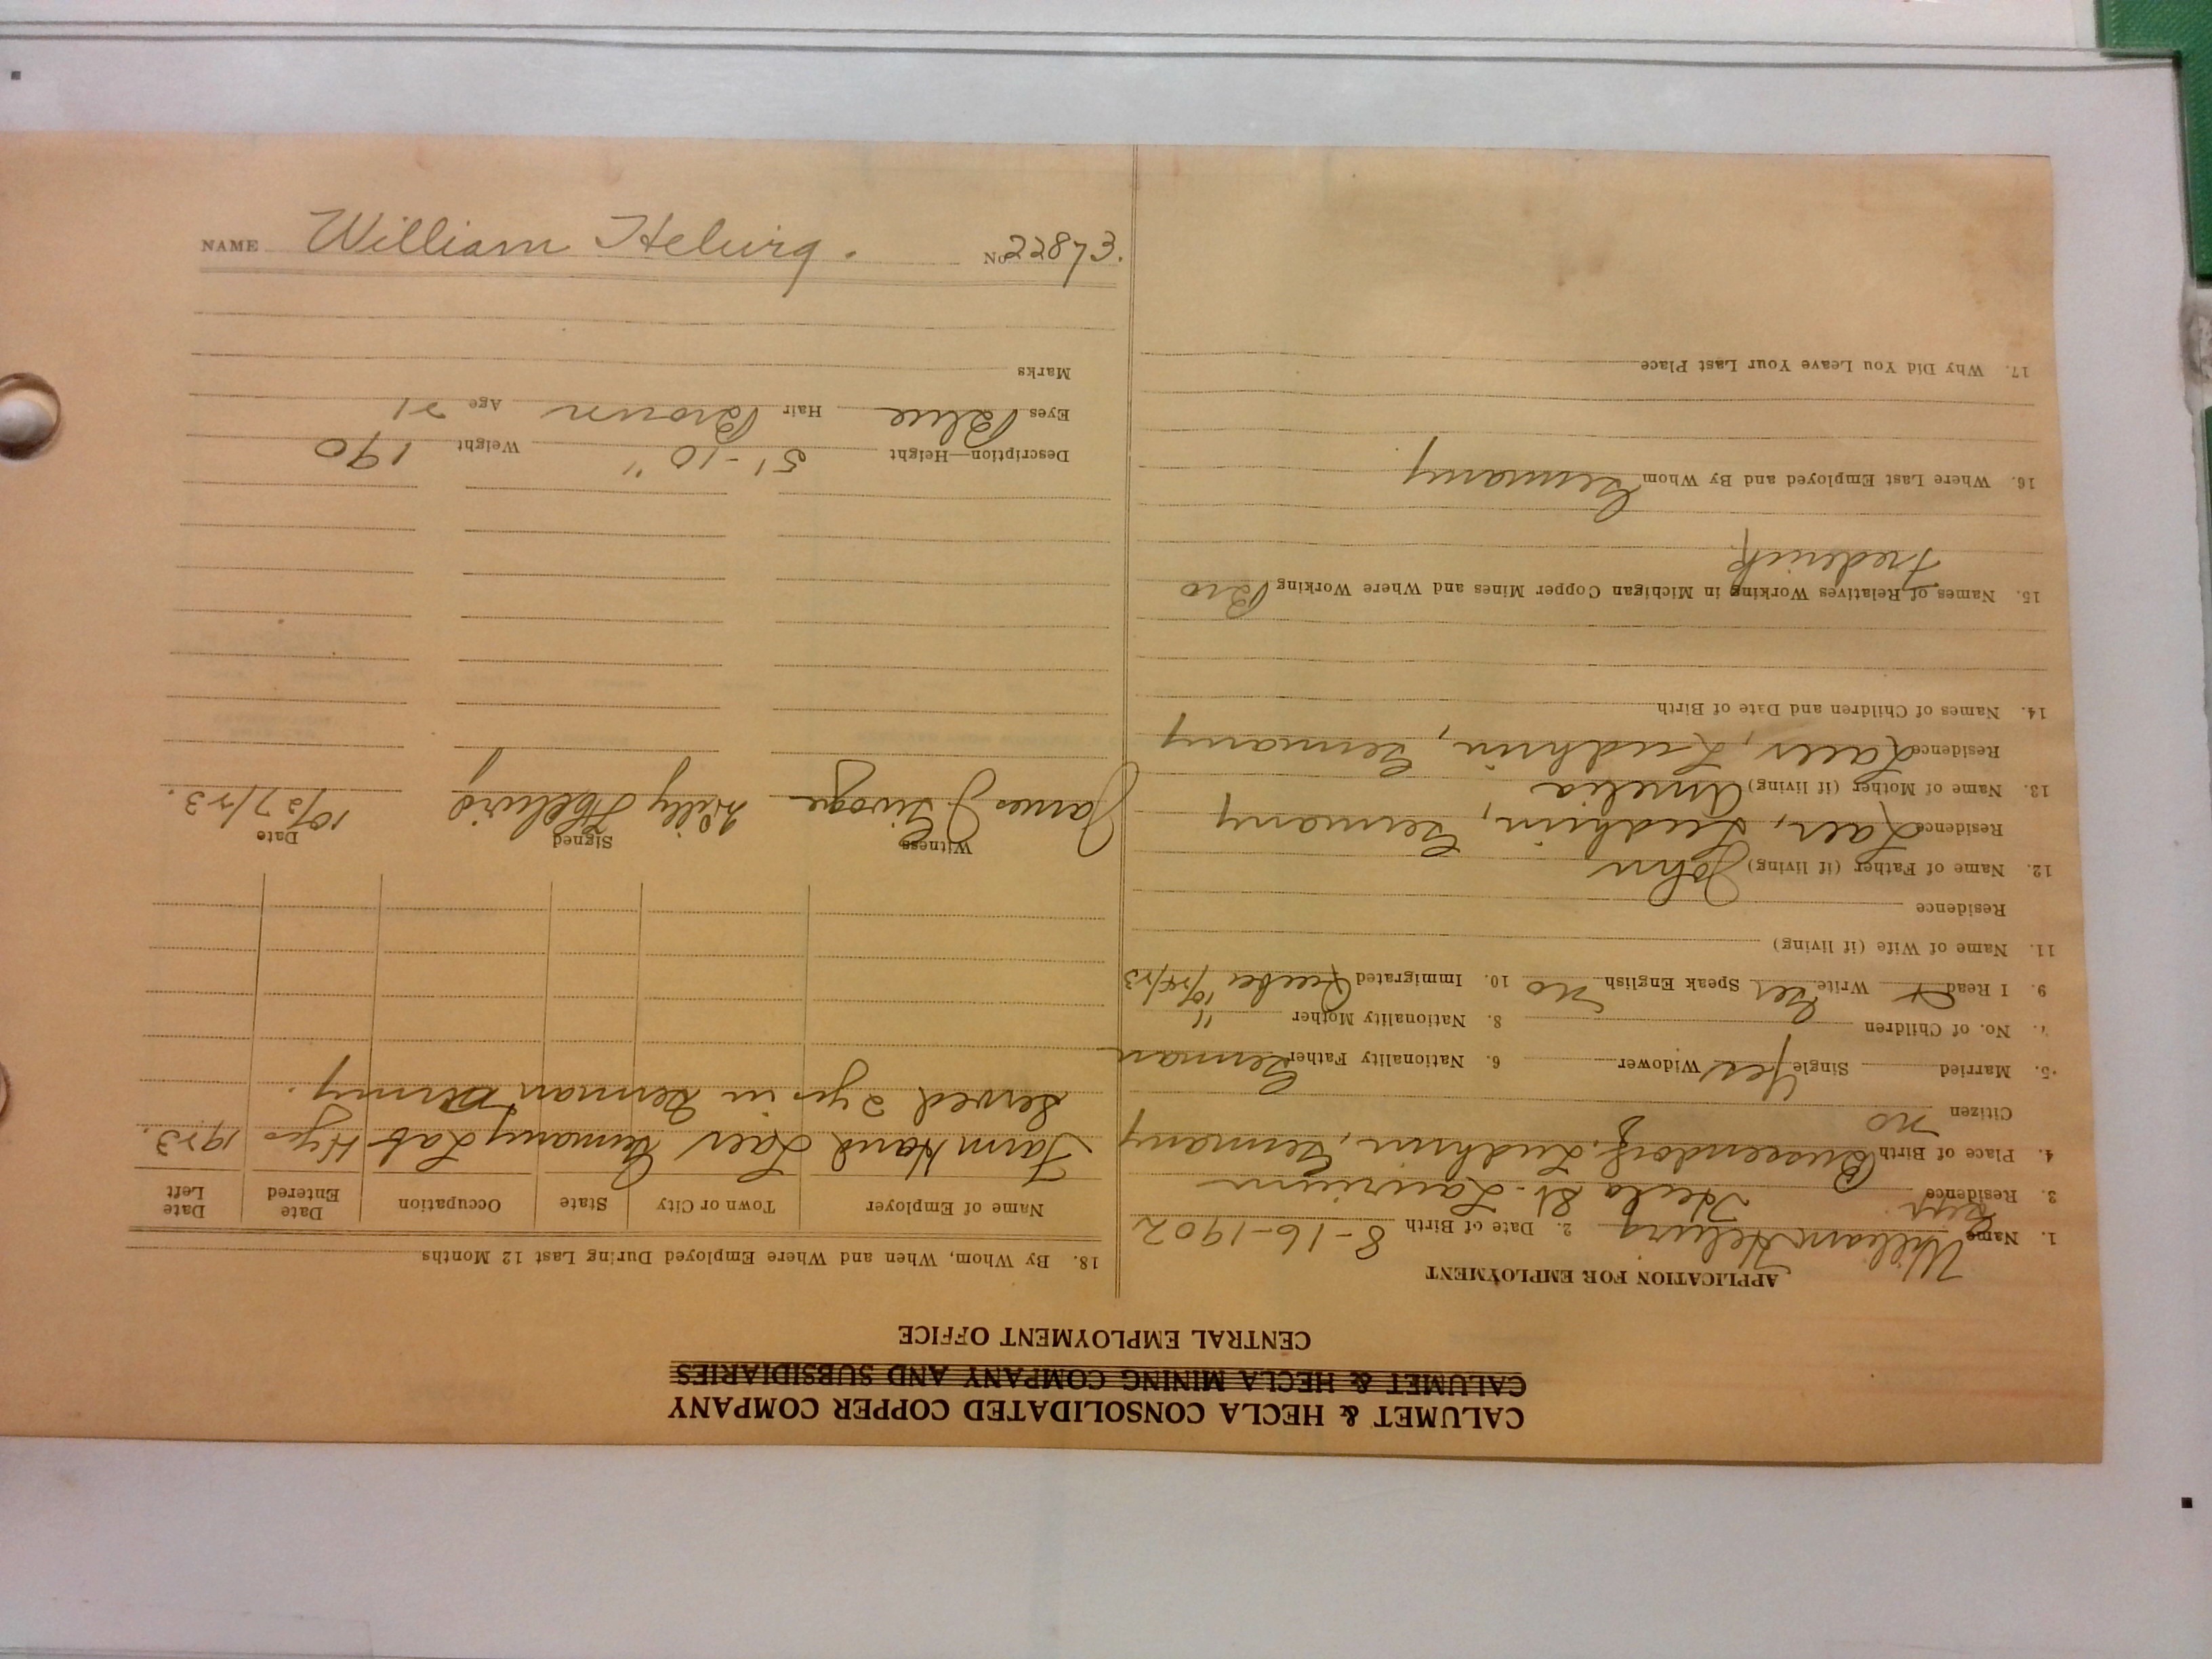 CALUMET & HECLA CONSOLIDATED COPPER COMPANY
CALUMET & HECLA MINING COMPANY AND SUBSIDIARIES
CENTRAL EMPLOYMENT OFFICE
APPLICATION FOR EMPLOYMENT
1. Name William Helwig 2. Date of Birth 8-16-1902
3. Residence Hecla St. Laurium
4. Place of Birth Bussendorf, Germany
Citizen no
5. Married Single Yes Widower 6. Nationality Father German
7. No. of Children 8. Nationality Mother "
9. I Read Write Ger Speak English no 10. Immigrated Quebec 10/24/23
11. Name of Wife (if living)
Residence
12. Name of Father (if living) John
Residence Laer, Germany
13. Name of Mother (if living) Amelia
Residence Laer, Germany
14. Names of Children and Date of Birth
15. Names of Relatives Working in Michigan Copper Mines and Where Working Bro
Frederick
16. Where Last Employed and By Whom Germany
17. Why Did You Leave Your Last Place
18. By Whom, When and Where Employed During Last 12 Months
Name of Employer Town or City State Occupation Date Entered Date Left
Farm Hand Laer Germany Lab 4 yrs 1923.
Served 2 yrs in German Army.
Witness Signed Date
James J. Willy Helwig 10/27/23.
Description—Height 5'-10" Weight 190
Eyes Blue Hair Brown Age 21
Marks
NAME William Helwig. No 22873.